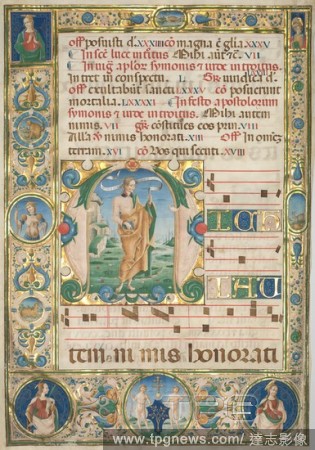 off posuisti d. XXXIII cō magna ē glia XXXV
In scē luce introitus Mihi aūt.
In vig aplor symonis & iude introitus.
Intret in conspectu. L. Gr vindica d.
off exultabūt sancti LXXXV cō posuerunt
mortalia. LXXXXI In festo apostolorum
symonis & iude introitus. Mihi autem
nimis. VII gr constitues eos prin. VIII
nimis honorati XIII off In omnez
terram. XVI cō Vos qui secuti XVIII
M
I CH
I AU
tem ni mis honorati
www.tpgnews.com / 達志影像